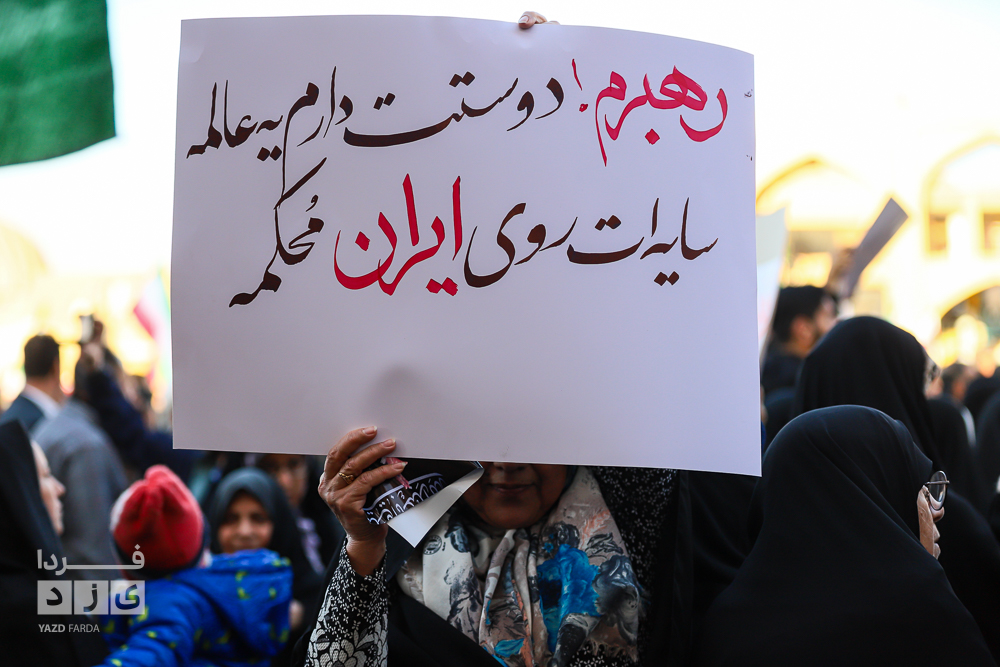 رهبرم! دوستت دارم یه عالمه
سایه ات روی ایران محکمه
فردا
یزد
YAZD FARDA